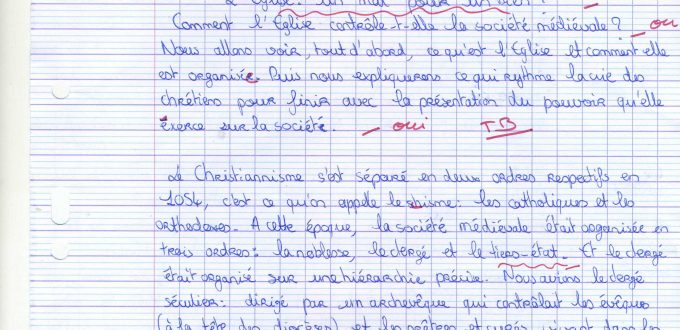 L'Eglise: un mal pour un bien?
Comment l'Eglise contrôle-t-elle la société médiévale? - oui
Nous allons voir, tout d'abord, ce qu'est l'Eglise et comment elle
est organisée. Puis nous expliquerons ce qui rythme la vie des
chrétiens pour finir avec la présentation du pouvoir qu'elle
éxerce sur la société. - oui TB
Le Christiannisme s'est séparé en deux ordres respectifs en
1054, c'est ce qu'on appelle le shisme: les catholiques et les
orthodoxes. A cette époque, la société médiévale était organisée en
trois ordres: la noblesse, le clergé et le tiers-état. Et le clergé
était organisé sur une hiérarchie précise. Nous avions le clergé
séculier: dirigé par un archevêque qui contrôlait les évêques
(à la tête des diocèses) et les prêtres et curés vivant dans les